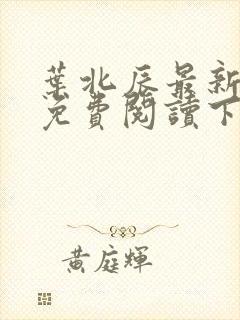 葉北辰最新
免費閱讀下
黃庭輝